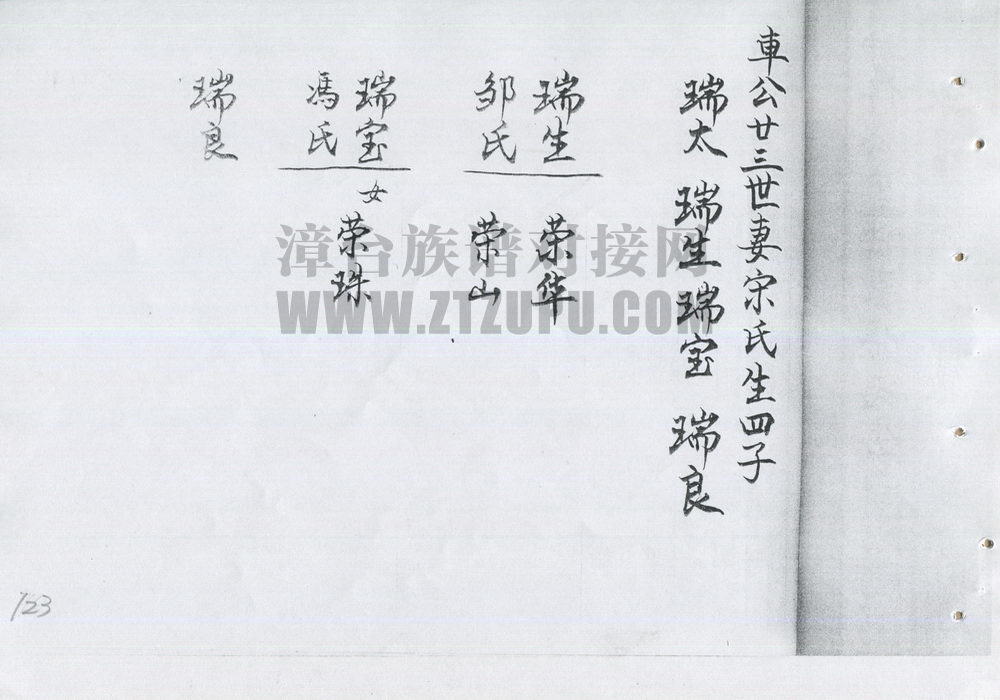 車公廿三世妻宋氏生四子
瑞太 瑞生 瑞宝 瑞良
瑞生 荣华
邹氏 荣山
瑞宝
冯氏
女 荣珠
瑞良
漳台族谱对接网
WWW.ZTZUPU.COM
123